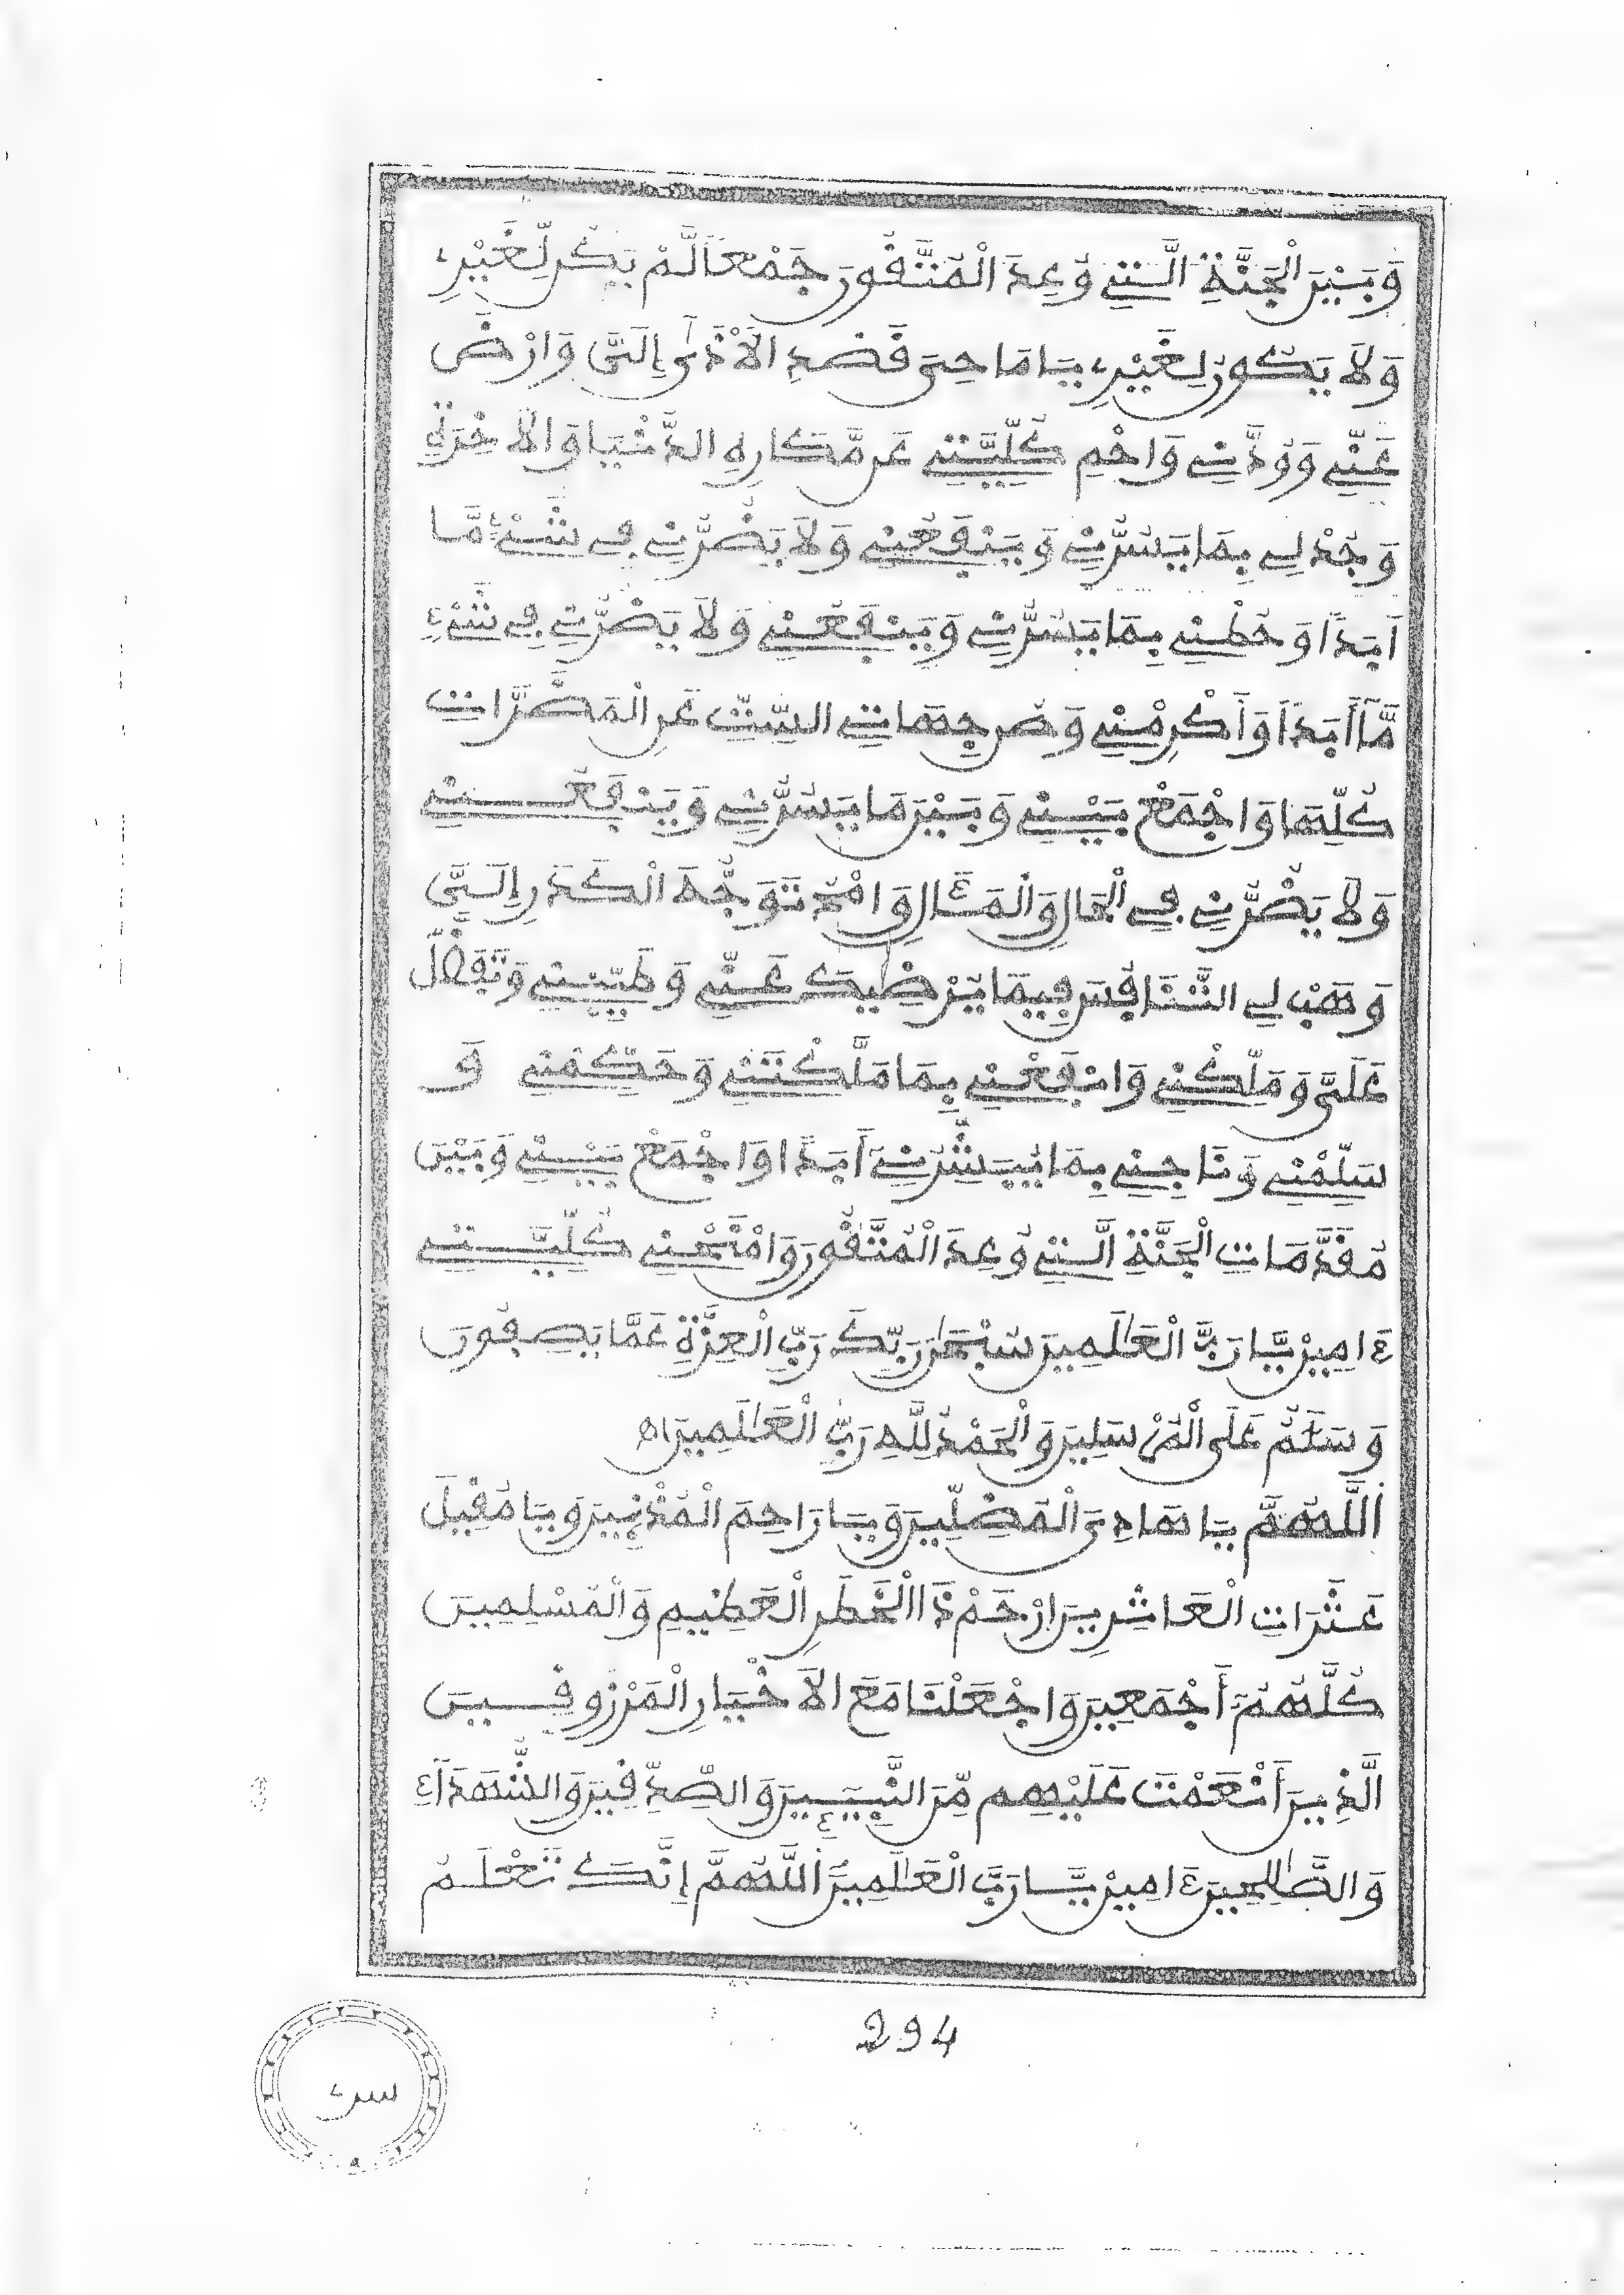 وَبَيْنَ الْجَنَّةِ الَّتِي وُعِدَ الْمُتَّقُونَ جَمْعًا لَّمْ يَكُن لِّغَيْرِي
وَلَا يَكُونُ لِغَيْرِي يَا مَاحِيَ قَصْدِ الْأَذَىٰ إِلَيَّ وَارْضَ
عَنِّي وَوُدَّنِي وَاحْمِ كُلِّيَّتِي عَن مَّكَارِهِ الدُّنْيَا وَالْآخِرَةِ
وَجُدْ لِي بِمَا يَسُرُّنِي وَيَنفَعُنِي وَلَا يَضُرُّنِي فِي شَيْءٍ مَّا
أَبَدًا وَحُطْنِي بِمَا يَسُرُّنِي وَيَنفَعُنِي وَلَا يَضُرُّنِي فِي شَيْءٍ
مَّا أَبَدًا وَأَكْرِمْنِي وَصُن جِهَاتِي السِّتَّ عَنِ الْمَضَرَّاتِ
كُلِّهَا وَاجْمَعْ بَيْنِي وَبَيْنَ مَا يَسُرُّنِي وَيَنفَعُنِي
وَلَا يَضُرُّنِي فِي الْحَالِ وَالْمَآلِ وَامْحُ تَوَجُّهَ الْكَدَرِ إِلَيَّ
وَهَبْ لِي التَّنَافُسَ فِيمَا يُرْضِيكَ عَنِّي وَطَيِّبْنِي وَتَفَضَّلْ
عَلَيَّ وَمَلِّكْنِي وَانفَعْنِي بِمَا مَلَّكْتَنِي وَحَكِّمْنِي وَ
سَلِّمْنِي وَنَاجِنِي بِمَا يُبَشِّرُنِي أَبَدًا وَاجْمَعْ بَيْنِي وَبَيْنَ
مُقَدِّمَاتِ الْجَنَّةِ الَّتِي وُعِدَ الْمُتَّقُونَ وَامْنَحْنِي كُلِّيَّتِي
ءَامِين يَّا رَبَّ الْعَٰلَمِينَ سُبْحَٰنَ رَبِّكَ رَبِّ الْعِزَّةِ عَمَّا يَصِفُونَ
وَسَلَٰمٌ عَلَى الْمُرْسَلِينَ وَالْحَمْدُ لِلَّهِ رَبِّ الْعَٰلَمِينَ اهـ
اللَّهُمَّ يَا هَادِيَ الْمُضِلِّينَ وَيَا رَاحِمَ الْمُذْنِبِينَ وَيَا مُقِيلَ
عَثَرَاتِ الْعَاثِرِينَ ارْحَمْ ذَا الْخَطَرِ الْعَظِيمِ وَالْمُسْلِمِينَ
كُلَّهُمُ أَجْمَعِينَ وَاجْعَلْنَا مَعَ الْأَخْيَارِ الْمَرْزُوقِينَ
الَّذِينَ أَنْعَمْتَ عَلَيْهِم مِّنَ النَّبِيِّينَ وَالصِّدِّيقِينَ وَالشُّهَدَآءِ
وَالصَّٰلِحِينَ ءَامِين يَّا رَبَّ الْعَٰلَمِينَ اللَّهُمَّ إِنَّكَ تَعْلَمُ
294